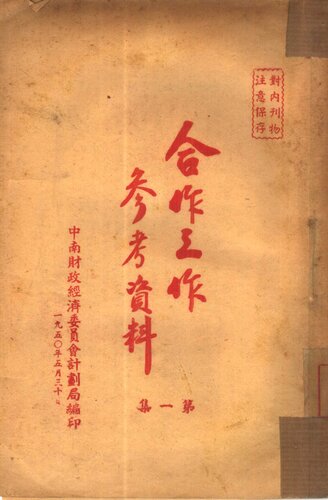 對內刊物
注意保存
合作工作
參考資料
第一集
中南財政經濟委員會計劃局編印
一九五〇年五月三十日